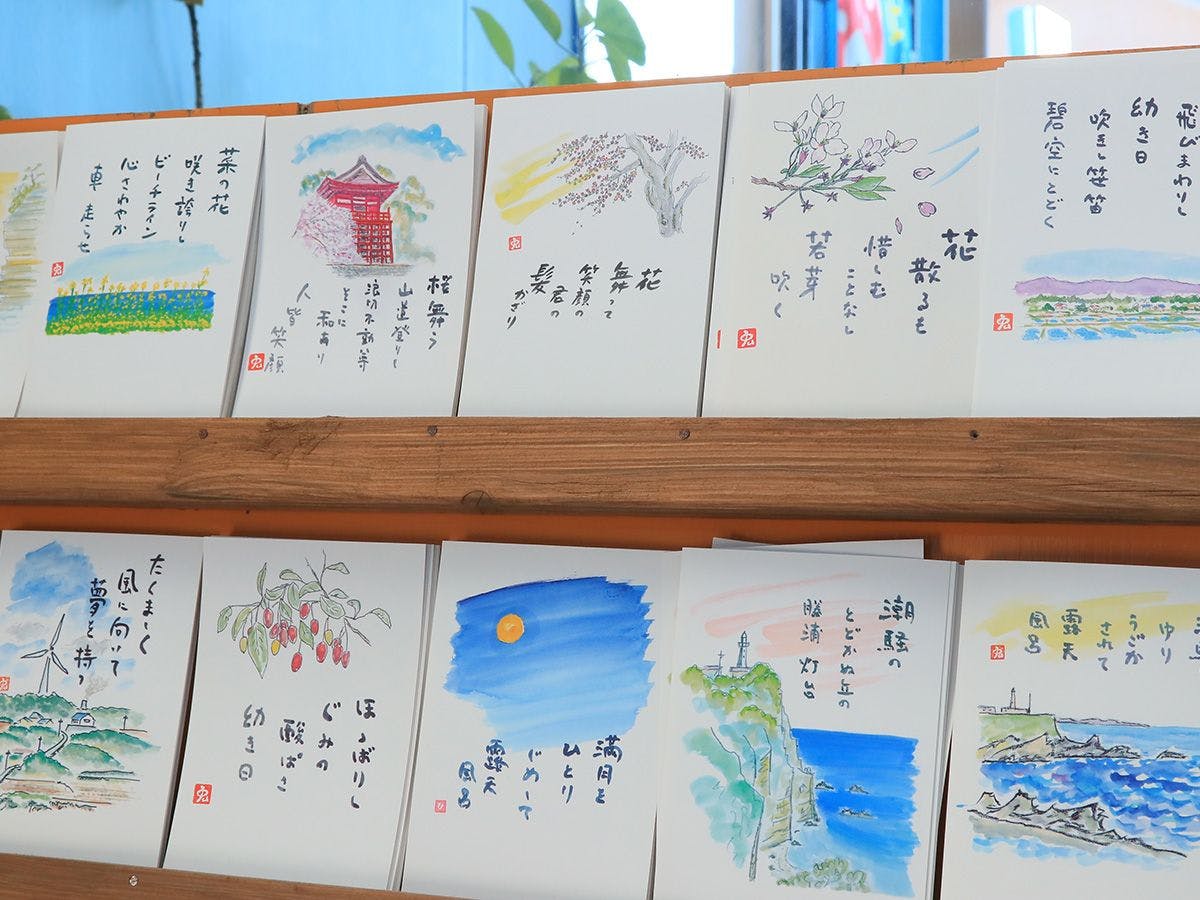 菜の花
咲き誇りし
ビーチライン
心さわやか
車走らせ
桜舞う
山道登りし
浪切不動尊
そこに和あり
人皆笑顔
花
舞って
笑顔の
君の
髪かざり
花
散るも
惜しむ
ことなし
若芽
吹く
飛びまわりし
幼き日
吹きし笹笛
碧空にとどく
たくましく
風に向いて
夢と持つ
ほゝばりし
ぐみの
酸ぱさ
幼き日
満月を
ひとり
じめして
露天
風呂
潮騒の
とどかぬ丘の
勝浦灯台
ゆり
うごか
されて
露天
風呂